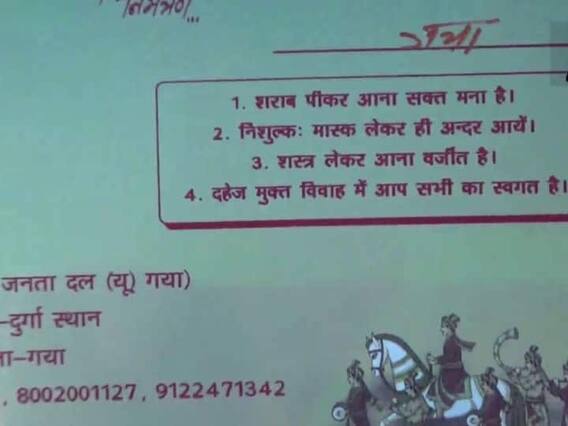 निमंत्रण...
गया
1. शराब पीकर आना सक्त मना है।
2. निशुल्कः मास्क लेकर ही अन्दर आयें।
3. शस्त्र लेकर आना वर्जीत है।
4. दहेज मुक्त विवाह में आप सभी का स्वगत है।
जनता दल (यू) गया)
-दुर्गा स्थान
-गया
, 8002001127, 9122471342